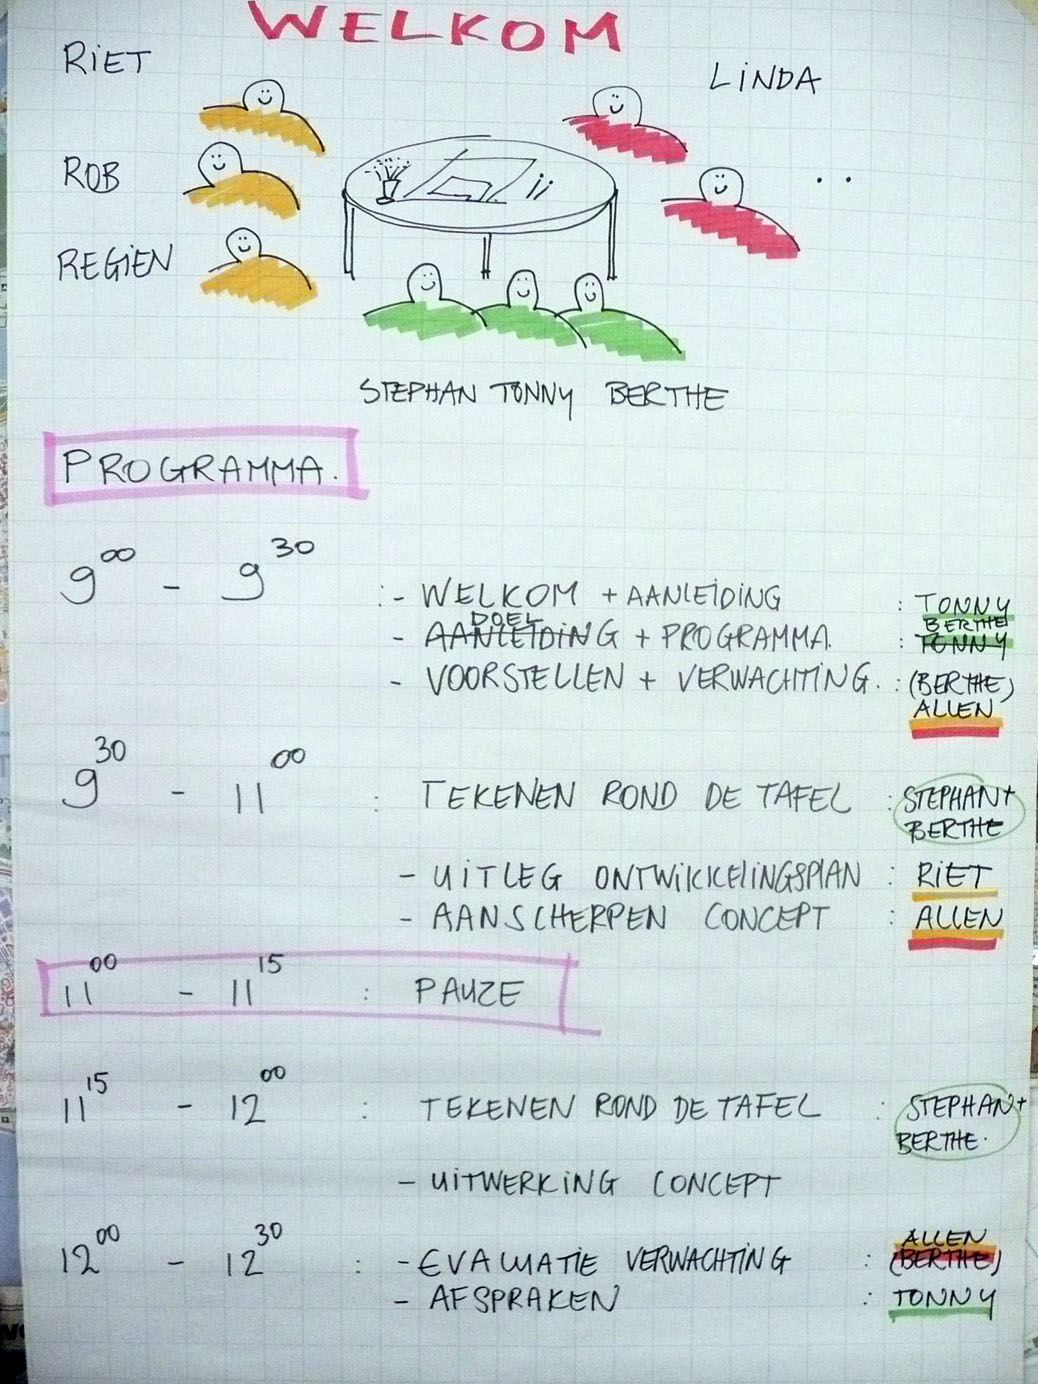 WELKOM
RIET
LINDA
ROB
..
REGIEN
STEPHAN TONNY BERTHE
PROGRAMMA.
9 00 - 9 30 :- WELKOM + AANLEIDING : TONNY
DOEL BERTHE
- AANLEIDING + PROGRAMMA. : TONNY
- VOORSTELLEN + VERWACHTING. : (BERTHE)
ALLEN
9 30 - 11 00 : TEKENEN ROND DE TAFEL : STEPHAN+
BERTHE
- UITLEG ONTWIKKELINGSPLAN : RIET
- AANSCHERPEN CONCEPT : ALLEN
11 00 - 11 15 : PAUZE
11 15 - 12 00 : TEKENEN ROND DE TAFEL : STEPHAN+
BERTHE.
- UITWERKING CONCEPT
ALLEN
12 00 - 12 30 : - EVALUATIE VERWACHTING : (BERTHE)
- AFSPRAKEN : TONNY